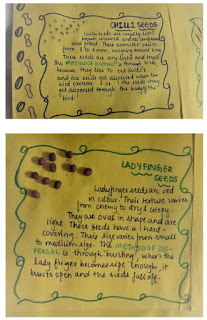 CHILLI SEEDS
Chilli seeds are usually light
brown coloured and are compressed
and pitted. Their diameter varies
from 3 to 4 mm, averaging around 3 mm.
These seeds are very light and small.
The METHOD OF DISPERSAL is through birds,
because they like to eat chilli's
and the seeds get dispersed when the
bird excretes the seeds
get dispersed through the body of the
bird.
LADYFINGER
SEEDS
Ladyfinger seeds are red
in colour. Their texture varies
from chewy to dry & crispy.
They are oval in shape and are
light. These seeds have a hard-
covering. Their size varies from small
to medium size. The METHOD OF DIS-
PERSAL is through 'bursting', when the
lady finger becomes ripe enough, it
bursts open and the seeds fall off.